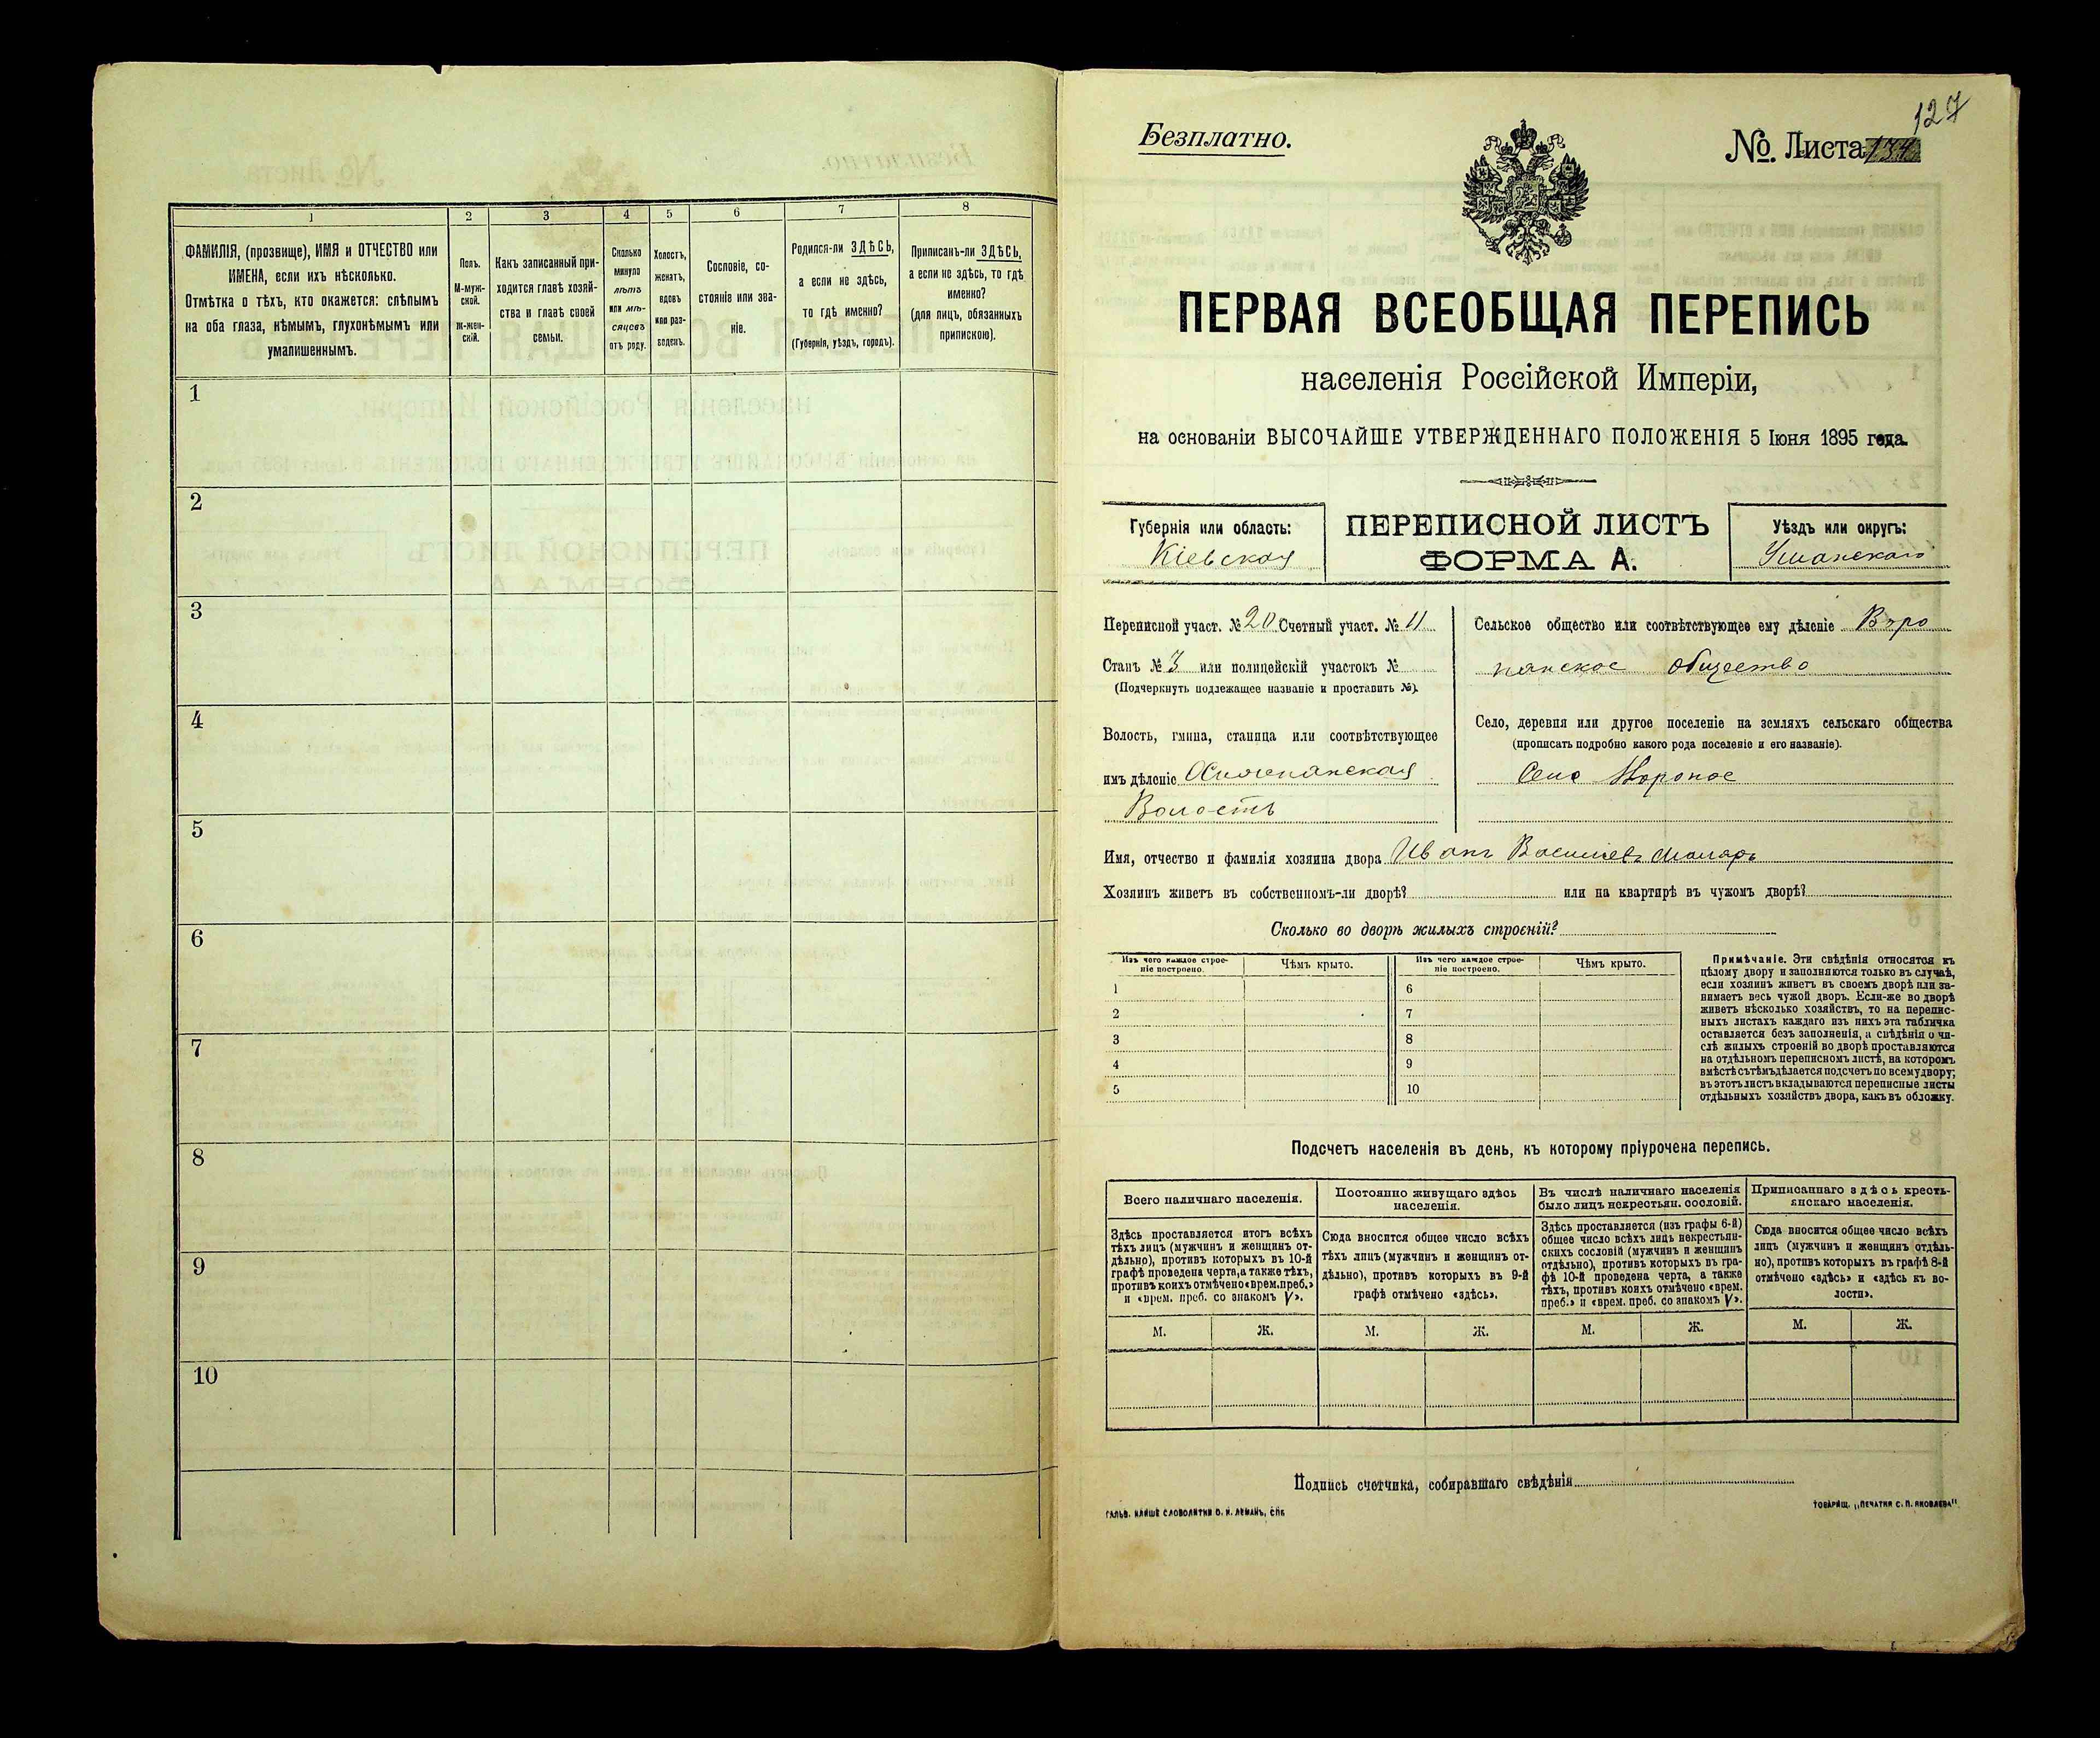 1
2
3
4
5
6
7
8
ФАМИЛІЯ, (прозвище), ИМЯ и ОТЧЕСТВО или
ИМЕНА, если ихъ нѣсколько.
Отмѣтка о тѣхъ, кто окажется: слѣпымъ
на оба глаза, нѣмымъ, глухонѣмымъ или
умалишеннымъ.
Полъ.
М-муж-
ской.
Ж-жен-
скій.
Какъ записанный при-
ходится главѣ хозяй-
ства и главѣ своей
семьи.
Сколько
минуло
лѣтъ
или мѣ-
сяцевъ
отъ роду.
Холостъ,
женатъ,
вдовъ
или раз-
веденъ.
Сословіе, со-
стояніе или зва-
ніе.
Родился-ли ЗДѢСЬ,
а если не здѣсь,
то гдѣ именно?
(Губернія, уѣздъ, городъ).
Приписанъ-ли ЗДѢСЬ,
а если не здѣсь, то гдѣ
именно?
(для лицъ, обязанныхъ
припискою).
1
2
3
4
5
6
7
8
9
10
127
Безплатно.
№. Листа
ПЕРВАЯ ВСЕОБЩАЯ ПЕРЕПИСЬ
населенія Россійской Имперіи,
на основаніи ВЫСОЧАЙШЕ УТВЕРЖДЕННАГО ПОЛОЖЕНІЯ 5 Іюня 1895 года.
Губернія или область:
Кіевская
ПЕРЕПИСНОЙ ЛИСТЪ
ФОРМА А.
Уѣздъ или округъ:
Уманскаго
Переписной участ. № 20 Счетный участ. № 11
Станъ № 3 или полицейскій участокъ №
(Подчеркнуть подлежащее названіе и проставить №).
Волость, гмина, станица или соотвѣтствующее
имъ дѣленіе
Волость
Сельское общество или соотвѣтствующее ему дѣленіе
общество
Село, деревня или другое поселеніе на земляхъ сельскаго общества
(прописать подробно какого рода поселеніе и его названіе).
Село
Имя, отчество и фамилія хозяина двора Иванъ Васильевъ Маляръ
Хозяинъ живетъ въ собственномъ-ли дворѣ? или на квартирѣ въ чужомъ дворѣ?
Сколько во дворѣ жилыхъ строеній?
Изъ чего каждое строе-
ніе построено.
Чѣмъ крыто.
Изъ чего каждое строе-
ніе построено.
Чѣмъ крыто.
1
2
3
4
5
6
7
8
9
10
Примѣчаніе. Эти свѣдѣнія относятся къ
цѣлому двору и заполняются только въ случаѣ,
если хозяинъ живетъ въ своемъ дворѣ или за-
нимаетъ весь чужой дворъ. Если-же во дворѣ
живетъ нѣсколько хозяйствъ, то на перепис-
ныхъ листахъ каждаго изъ нихъ эта табличка
оставляется безъ заполненія, а свѣдѣнія о чи-
слѣ жилыхъ строеній во дворѣ проставляются
на отдѣльномъ переписномъ листѣ, на которомъ
вмѣстѣ съ тѣмъ дѣлается подсчетъ по всему двору;
въ этотъ листъ вкладываются переписные листы
отдѣльныхъ хозяйствъ двора, какъ въ обложку.
Подсчетъ населенія въ день, къ которому пріурочена перепись.
Всего наличнаго населенія.
Здѣсь проставляется итогъ всѣхъ
тѣхъ лицъ (мужчинъ и женщинъ от-
дѣльно), противъ которыхъ въ 10-й
графѣ проведена черта, а также тѣхъ,
противъ коихъ отмѣчено «врем. преб.»
и «врем. преб. со знакомъ V».
Постоянно живущаго здѣсь
населенія.
Сюда вносится общее число всѣхъ
тѣхъ лицъ (мужчинъ и женщинъ от-
дѣльно), противъ которыхъ въ 9-й
графѣ отмѣчено «здѣсь».
Въ числѣ наличнаго населенія
было лицъ некрестьян. сословій.
Здѣсь проставляется (изъ графы 6-й)
общее число всѣхъ лицъ некрестьян-
скихъ сословій (мужчинъ и женщинъ
отдѣльно), противъ которыхъ въ гра-
фѣ 10-й проведена черта, а также
тѣхъ, противъ коихъ отмѣчено «врем.
преб.» и «врем. преб. со знакомъ V».
Приписаннаго здѣсь кресть-
янскаго населенія.
Сюда вносится общее число всѣхъ
лицъ (мужчинъ и женщинъ отдѣль-
но), противъ которыхъ въ графѣ 8-й
отмѣчено «здѣсь» и «здѣсь къ во-
лости».
М. Ж. М. Ж. М. Ж. М. Ж.
Подпись счетчика, собиравшаго свѣдѣнія
ГАЛЬВ. КЛИШЕ СЛОВОЛИТНИ О. И. ЛЕМАНЪ, СПБ.
ТОВАРИЩ. „ПЕЧАТНЯ С. П. ЯКОВЛЕВА"